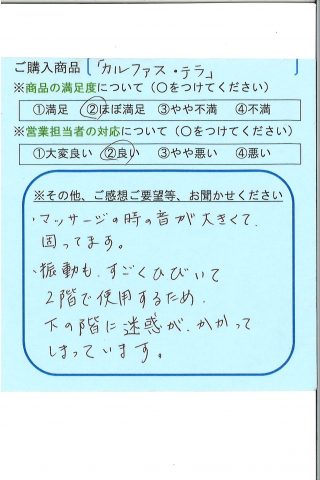 ご購入商品「カルファス・テラ」
※商品の満足度について（○をつけてください）
①満足 ②ほぼ満足 ③やや不満 ④不満
※営業担当者の対応について（○をつけてください）
①大変良い ②良い ③やや悪い ④悪い
※その他、ご感想ご要望等、お聞かせください
・マッサージの時の音が大きくて、
困ってます。
・振動も、すごくひびいて
2階で使用するため、
下の階に迷惑が、かかって
しまっています。